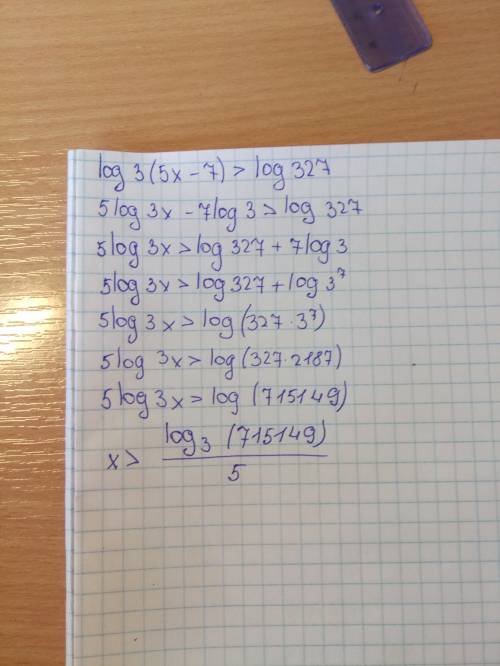 log 3(5x-7) > log 327
5log 3x - 7log 3 > log 327
5log 3x > log 327 + 7log 3
5log 3x > log 327 + log 3⁷
5log 3x > log(327·3⁷)
5log 3x > log(327·2187)
5log 3x > log (715149)
x > log₃ (715149) / 5